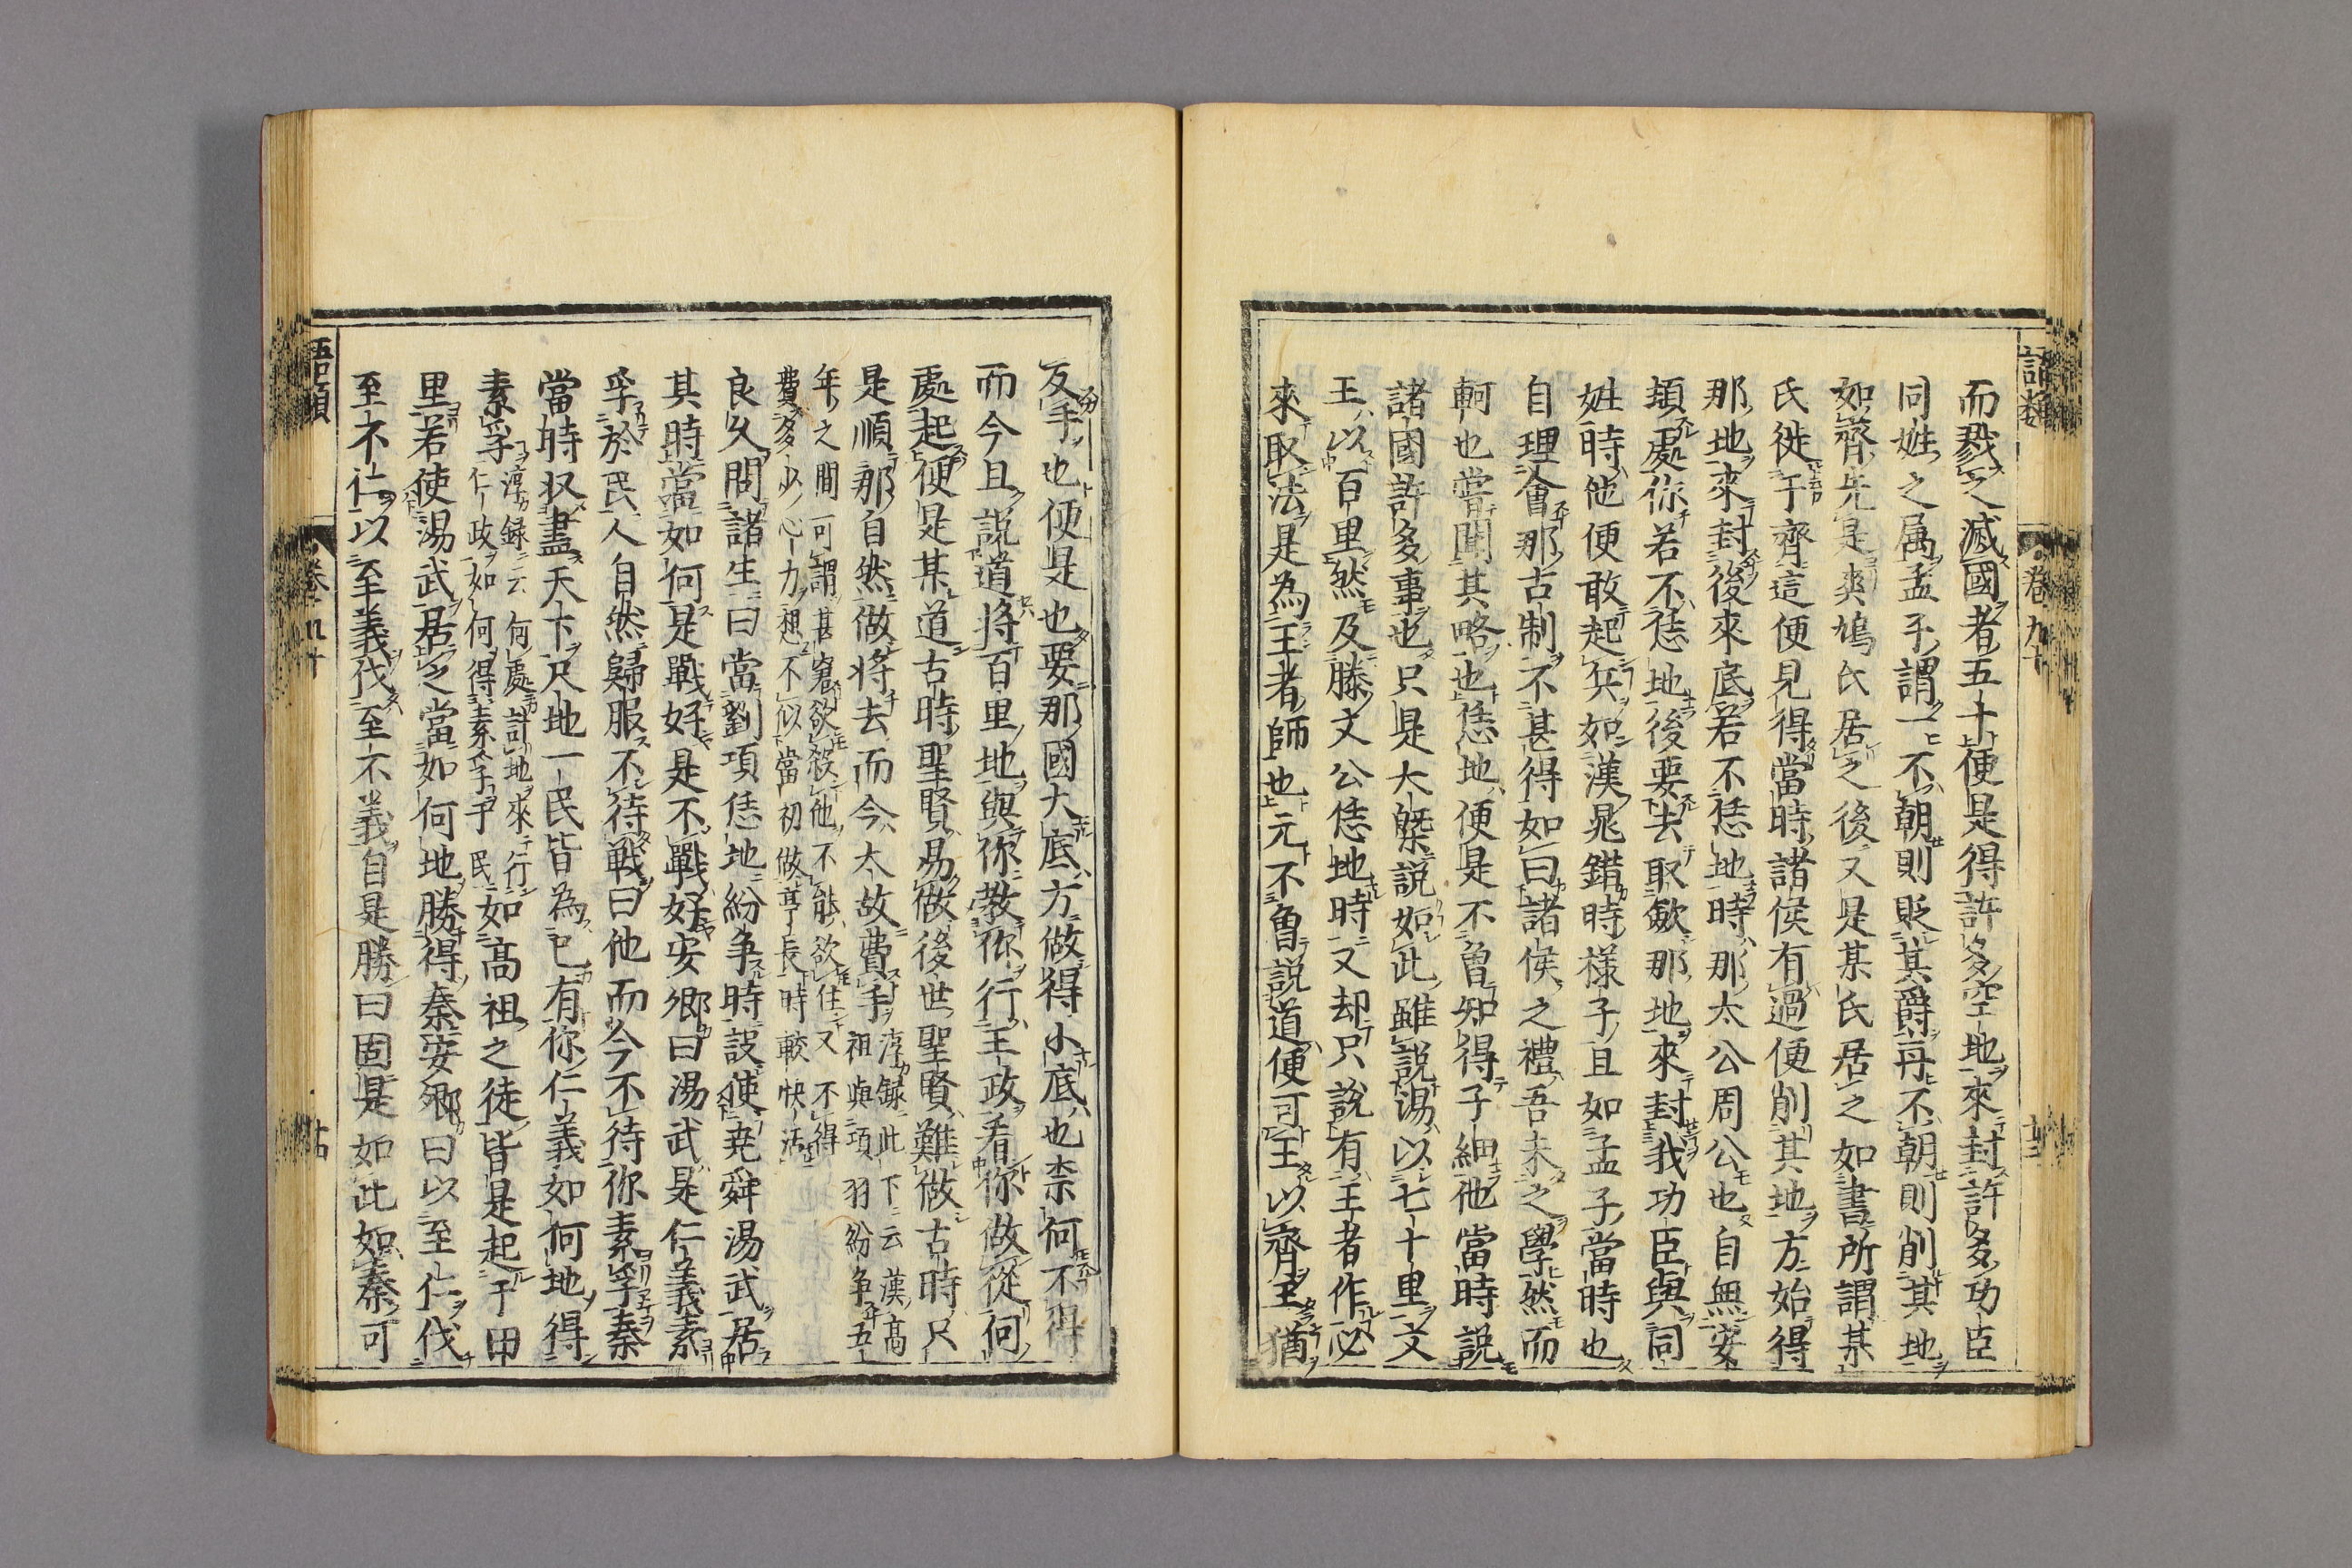 語類
卷九十
而戮之滅國者五十便是得許多空地來封許多功臣
同姓之属孟子謂一不朝則貶其爵再不朝則削其地
如齊先是爽鳩氏居之後又是某氏居之如書所謂某
氏徙于齊這便見得當時諸侯有過便削其地方始得
那地來封後來底若不恁地時那太公周公也自無安
頓處你若不恁地後要去取斂那地來封我功臣與同
姓時他便敢起兵如漢晁錯時様子且如孟子當時也
自理會那古制不甚得如曰諸侯之禮吾未之學然而
軻也嘗聞其略也恁地便是不曾知得子細他當時説
諸國許多事也只是大槩説如此雖説湯以七十里文
王以百里然及滕文公恁地時又却只説有王者作必
來取法是為王者師也元不曾説道便可王以齊王猶
反手也便是也要那國大底方做得小底也柰何不得
而今且説道將百里地與你教你行王政看你做從何
處起便是某道古時聖賢易做後世聖賢難做古時只
是順那自然做将去而今太故費手 淳録此下云漢髙
祖與項羽紛争五
年之間可謂甚窘欲殺他不能欲住又不得
費多少心力想不似當初做亭長時較快活
良久問諸生曰當劉項恁地紛争時設使堯舜湯武居
其時當如何是戰好是不戰好安卿曰湯武是仁義素
孚於民人自然歸服不待戰曰他而今不待你素孚秦
當時収盡天下尺地一民皆為己有你仁義如何地得
素孚 淳録云何處討地來行
仁政如何得素孚于民 如髙祖之徒皆是起于田
里若使湯武居之當如何地勝得秦安卿曰以至仁伐
至不仁以至義伐至不義自是勝曰固是如此如秦可
語類